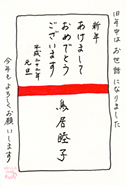 旧年中はお世話になりました
新年
あけまして
おめでとう
ございます
平成二十九年
元旦
鳥居睦子
今年もよろしくお願いします